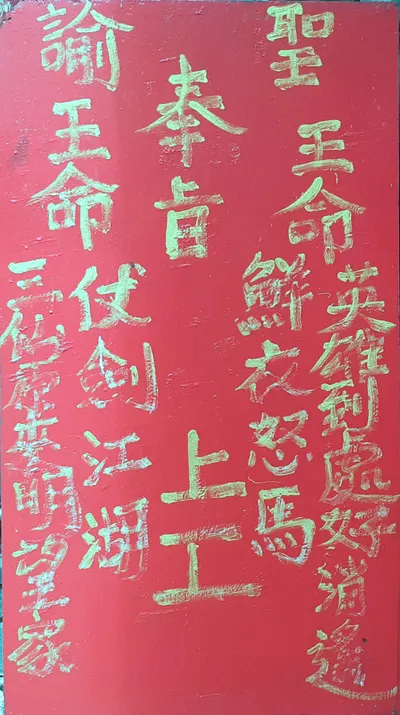 聖
王命
英雄到處好消遙
鮮衣怒馬
奉旨
上工
諭
王命
仗劍江湖
三仙 來明望家